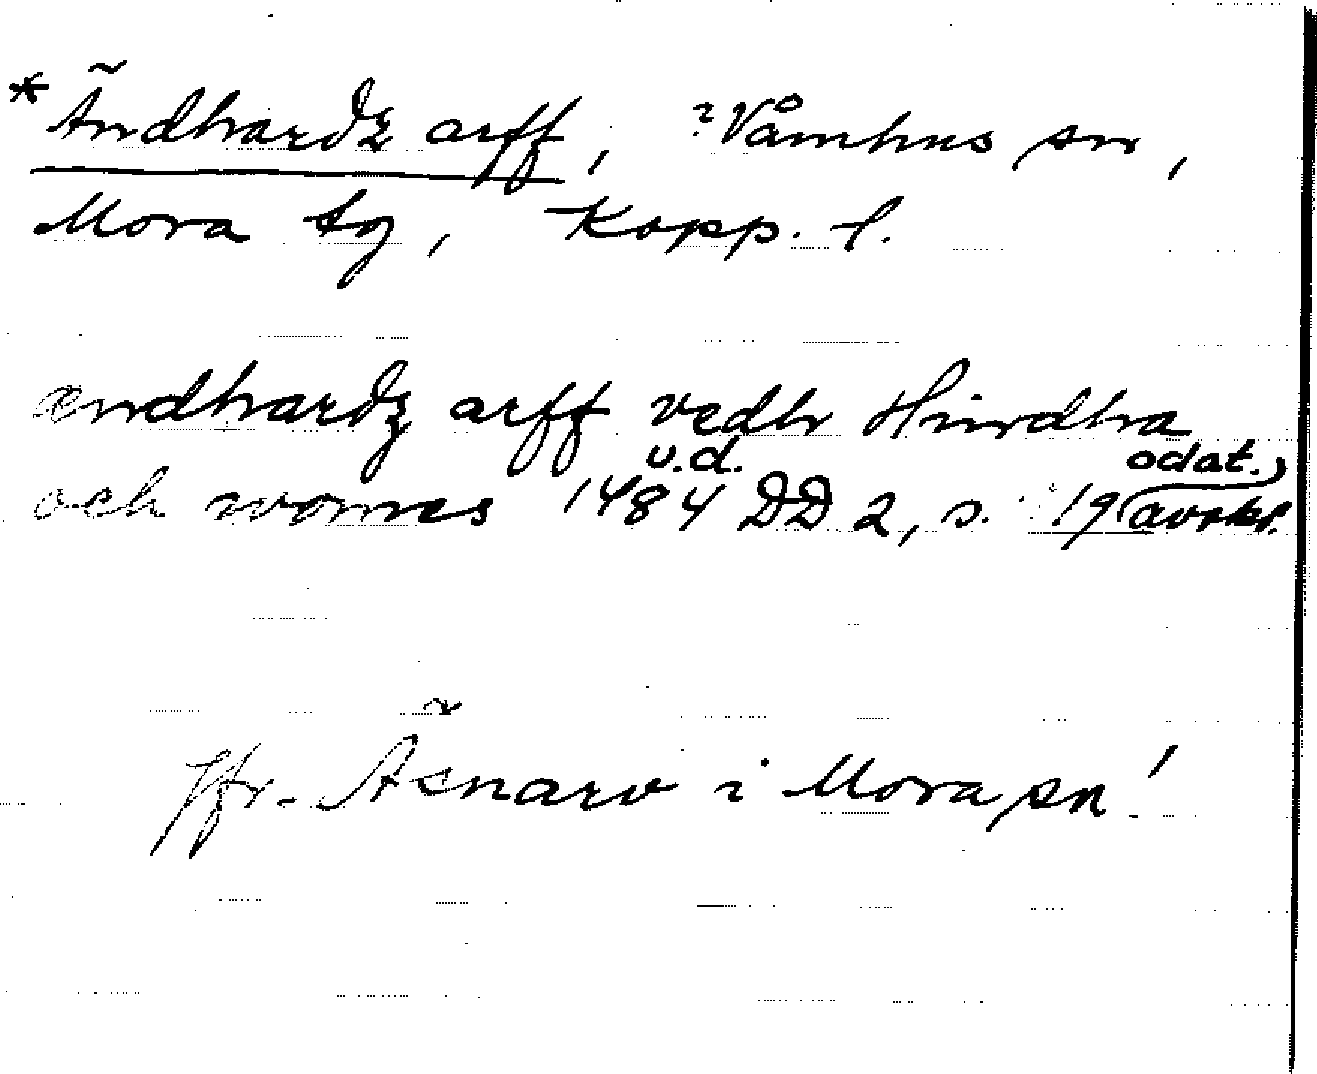 * Ändhardz arff, ? Våmhus sn,
Mora tg, Kopp. l.
ændhardz arff vedh Hindha
och womes u.d. 1484 DD 2, s. 19 (odat. avskr.)
Jfr. Äsnarv i Mora sn!